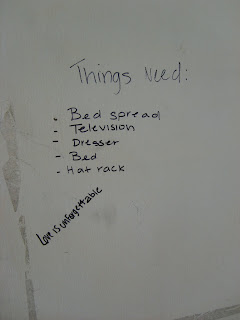 Things Need:
- Bed spread
- Television
- Dresser
- Bed
- Hat rack
Love is unforgettable